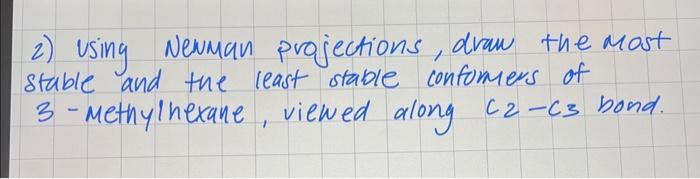 2) Using Newman projections, draw the most
stable and the least stable confomers of
3-Methylhexane, viewed along C2-C3 bond.